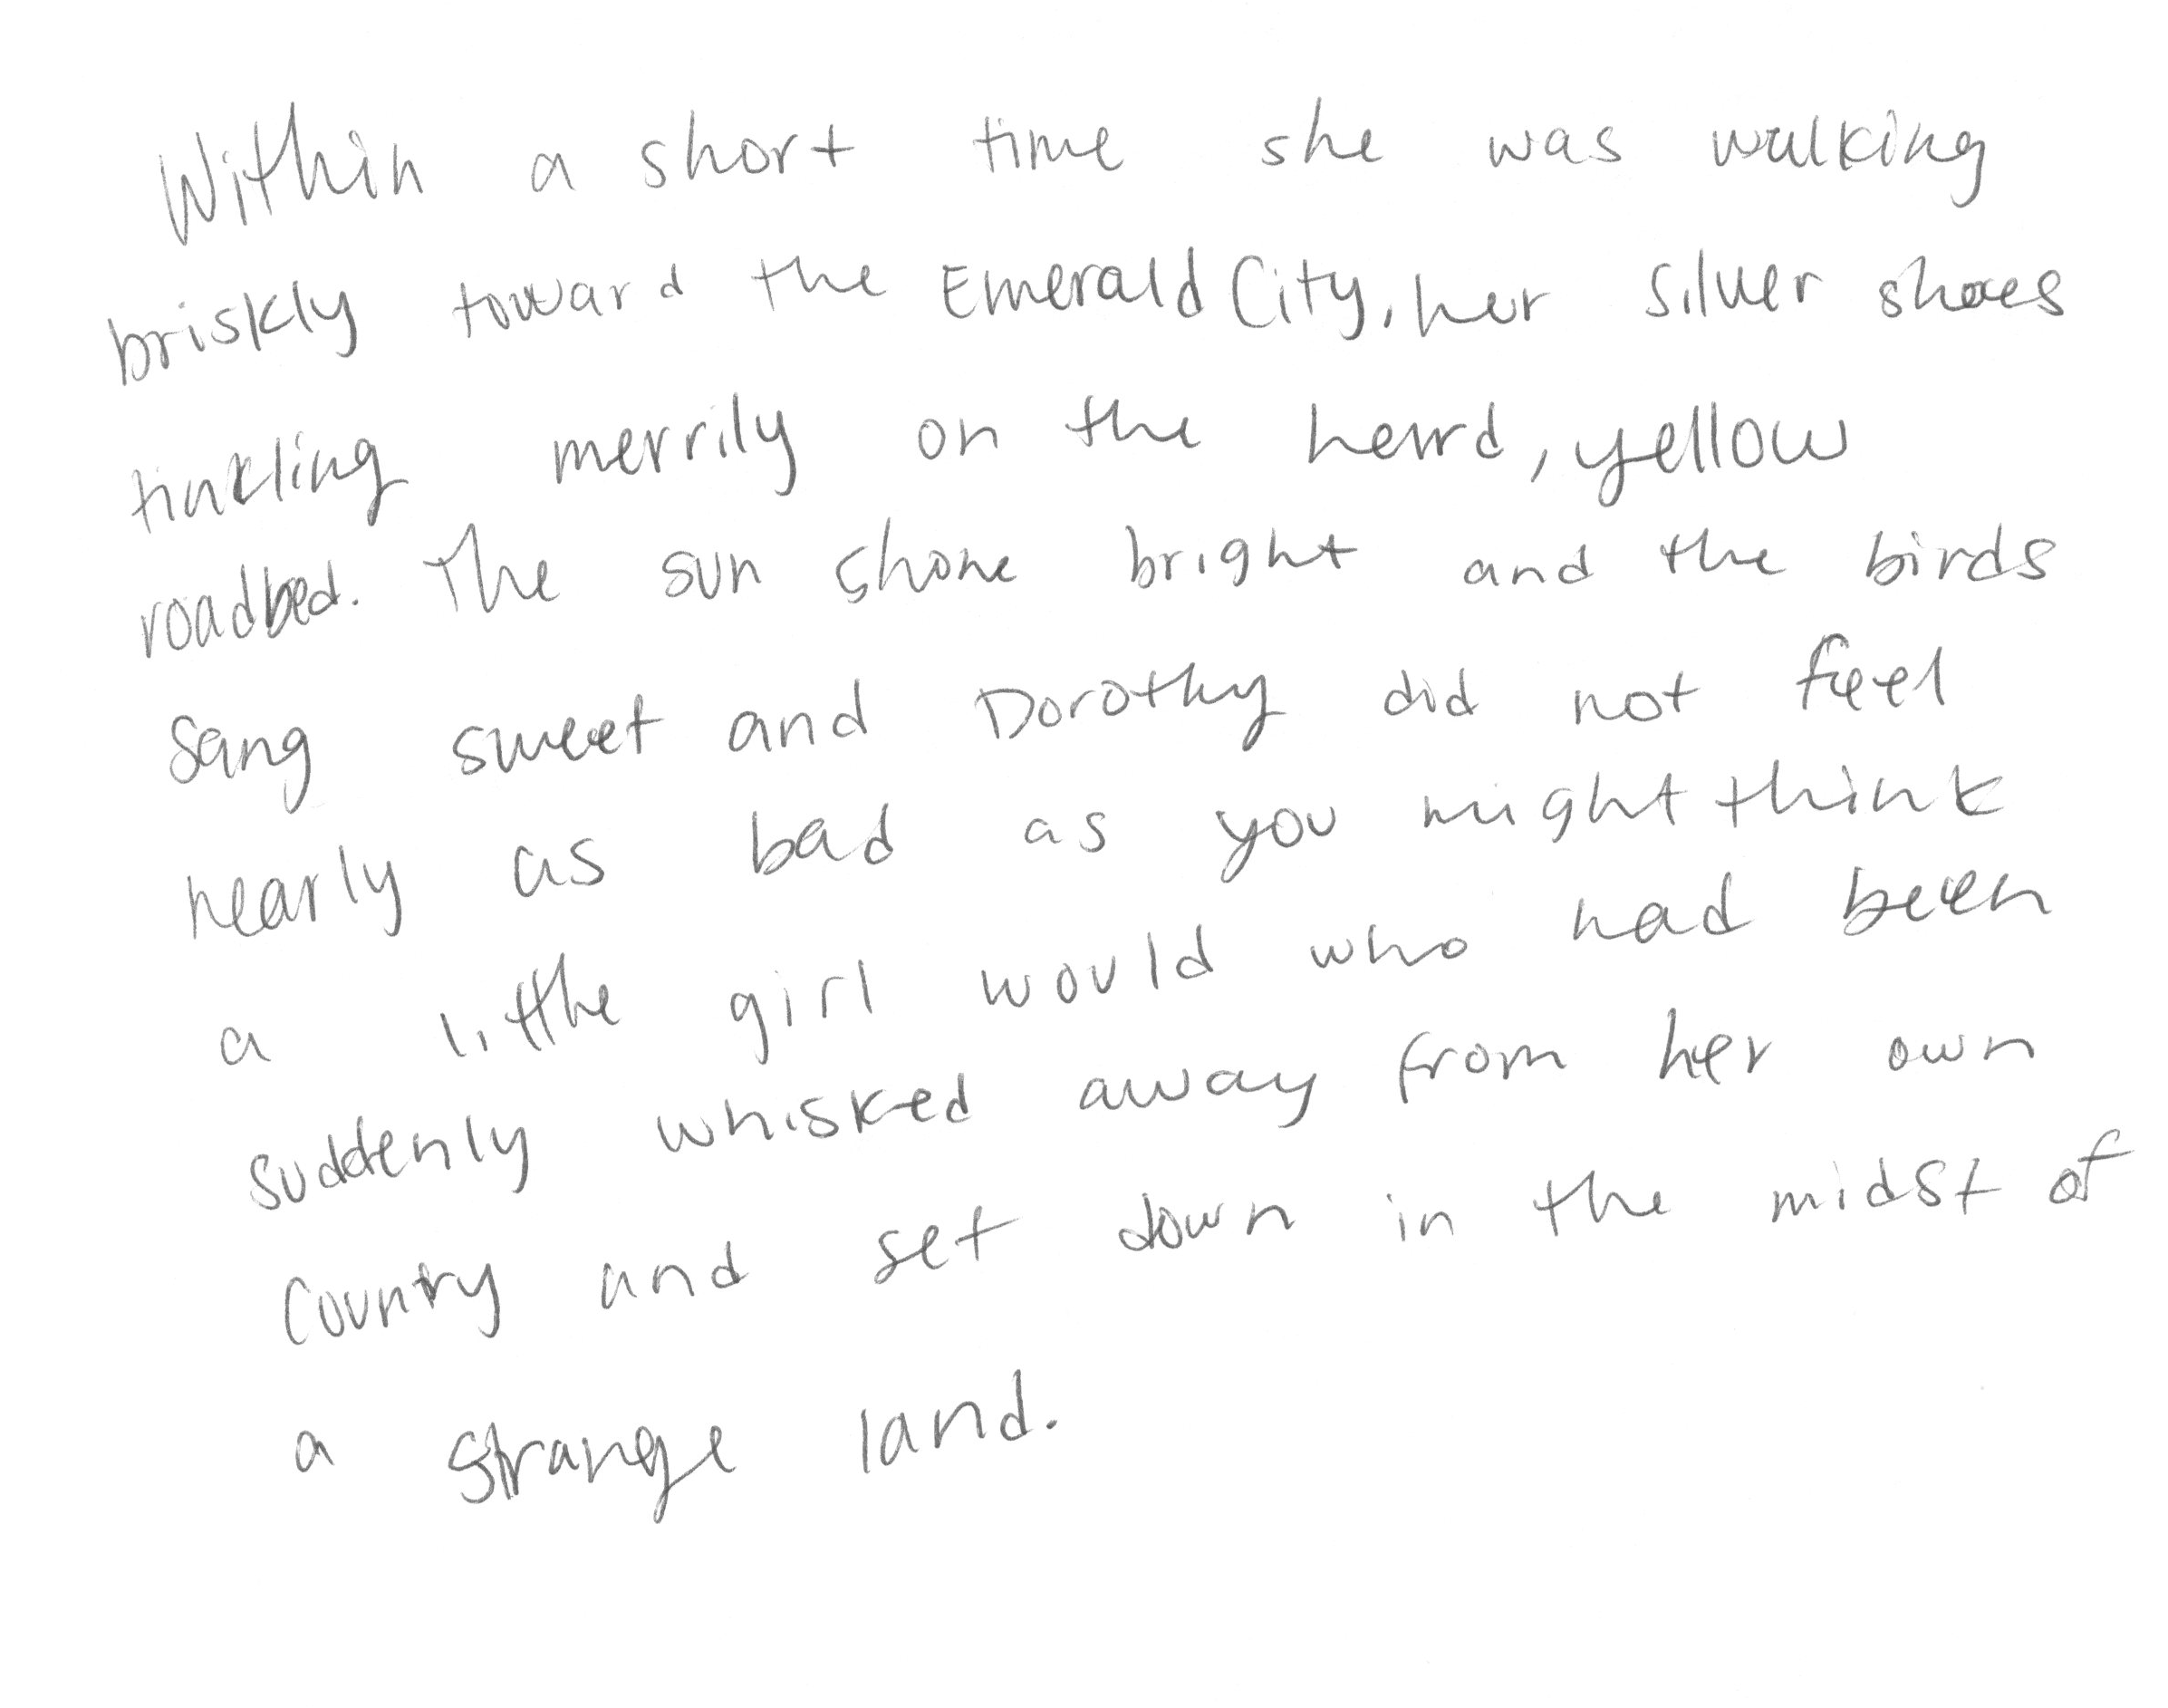 Within a short time she was walking
briskly toward the Emerald City, her silver shoes
tinkling merrily on the hard, yellow
roadbed. The sun shone bright and the birds
sang sweet and Dorothy did not feel
nearly as bad as you might think
a little girl would who had been
suddenly whisked away from her own
country and set down in the midst of
a strange land.